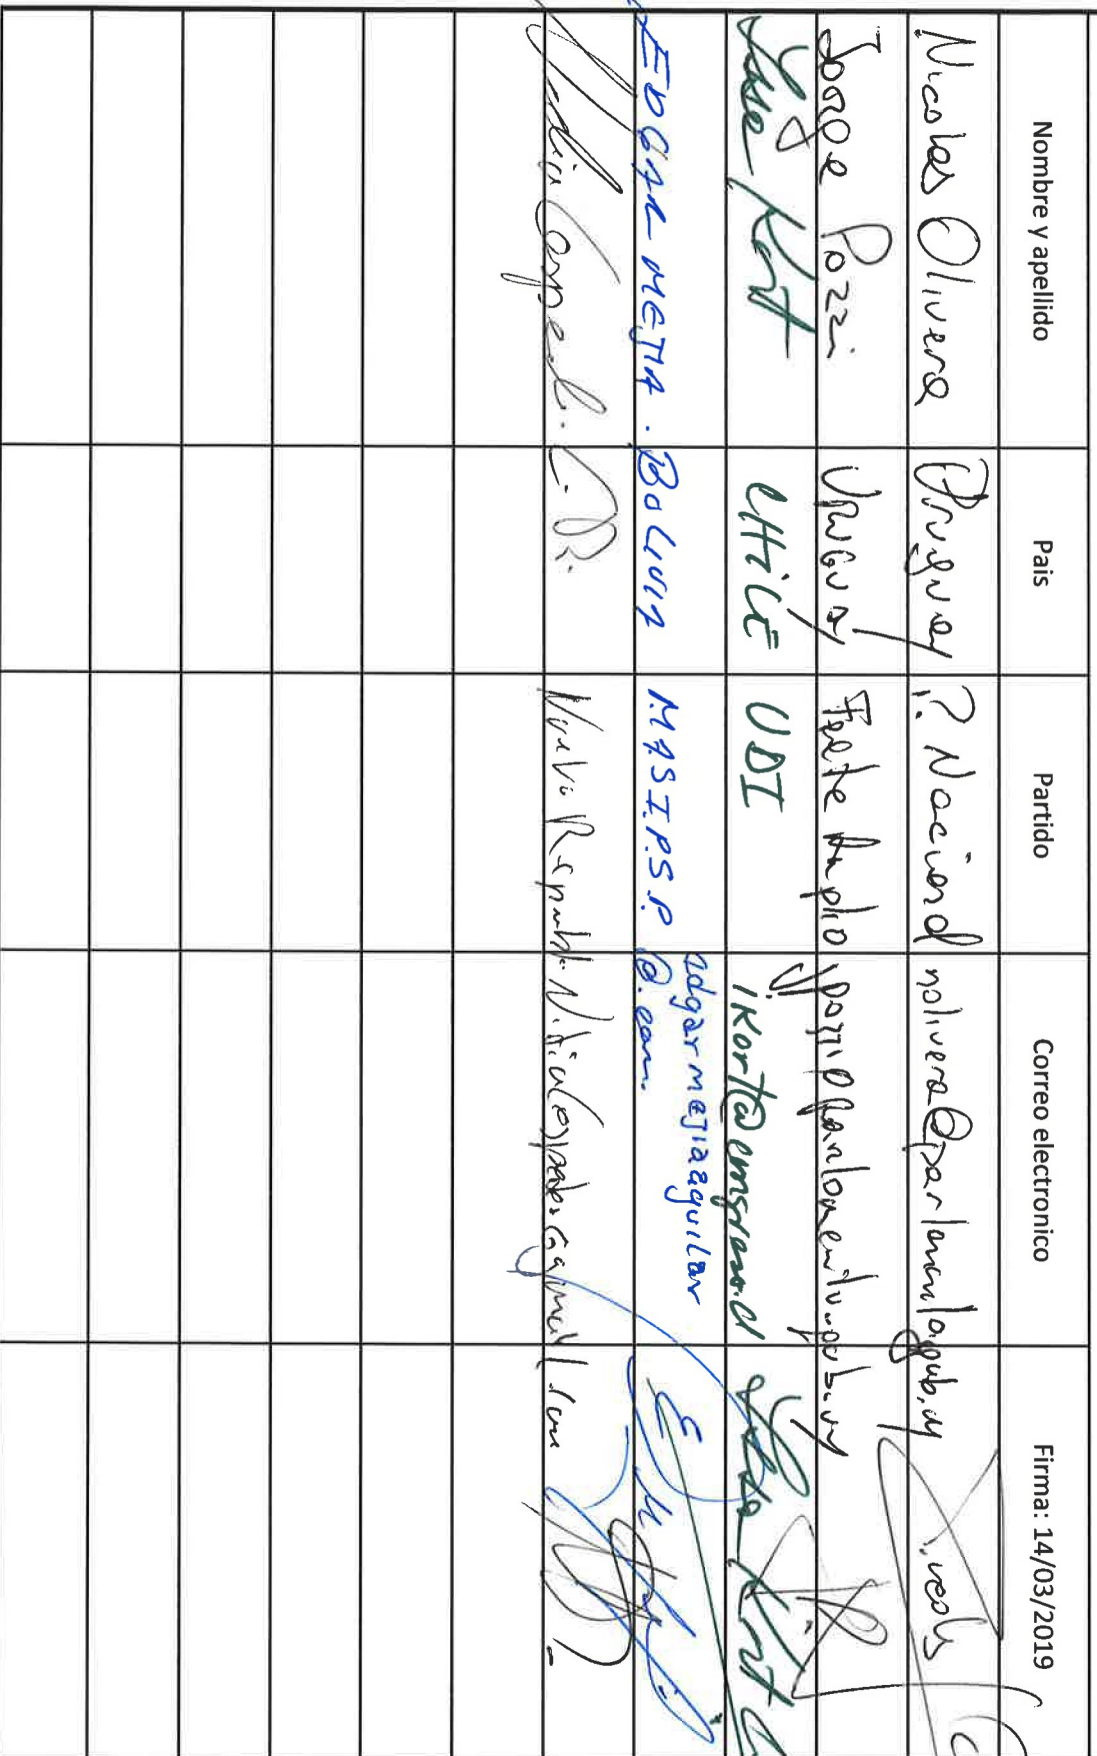 Nombre y apellido Pais Partido Correo electronico Firma: 14/03/2019
Nicolas Olivera Uruguay P. Nacional nolivera@parlamento.gub.uy
Jorge Pozzi Uruguay Frente Amplio jpozzi@parlamento.gub.uy
Issa Kort CHILE UDI ikort@congreso.cl Issa Kort
EDGAR MEJIA. BOLIVIA M.A.S I.P.S.P. edgarmejiaaguilar
@.com.
C.R. Nueva Republi.